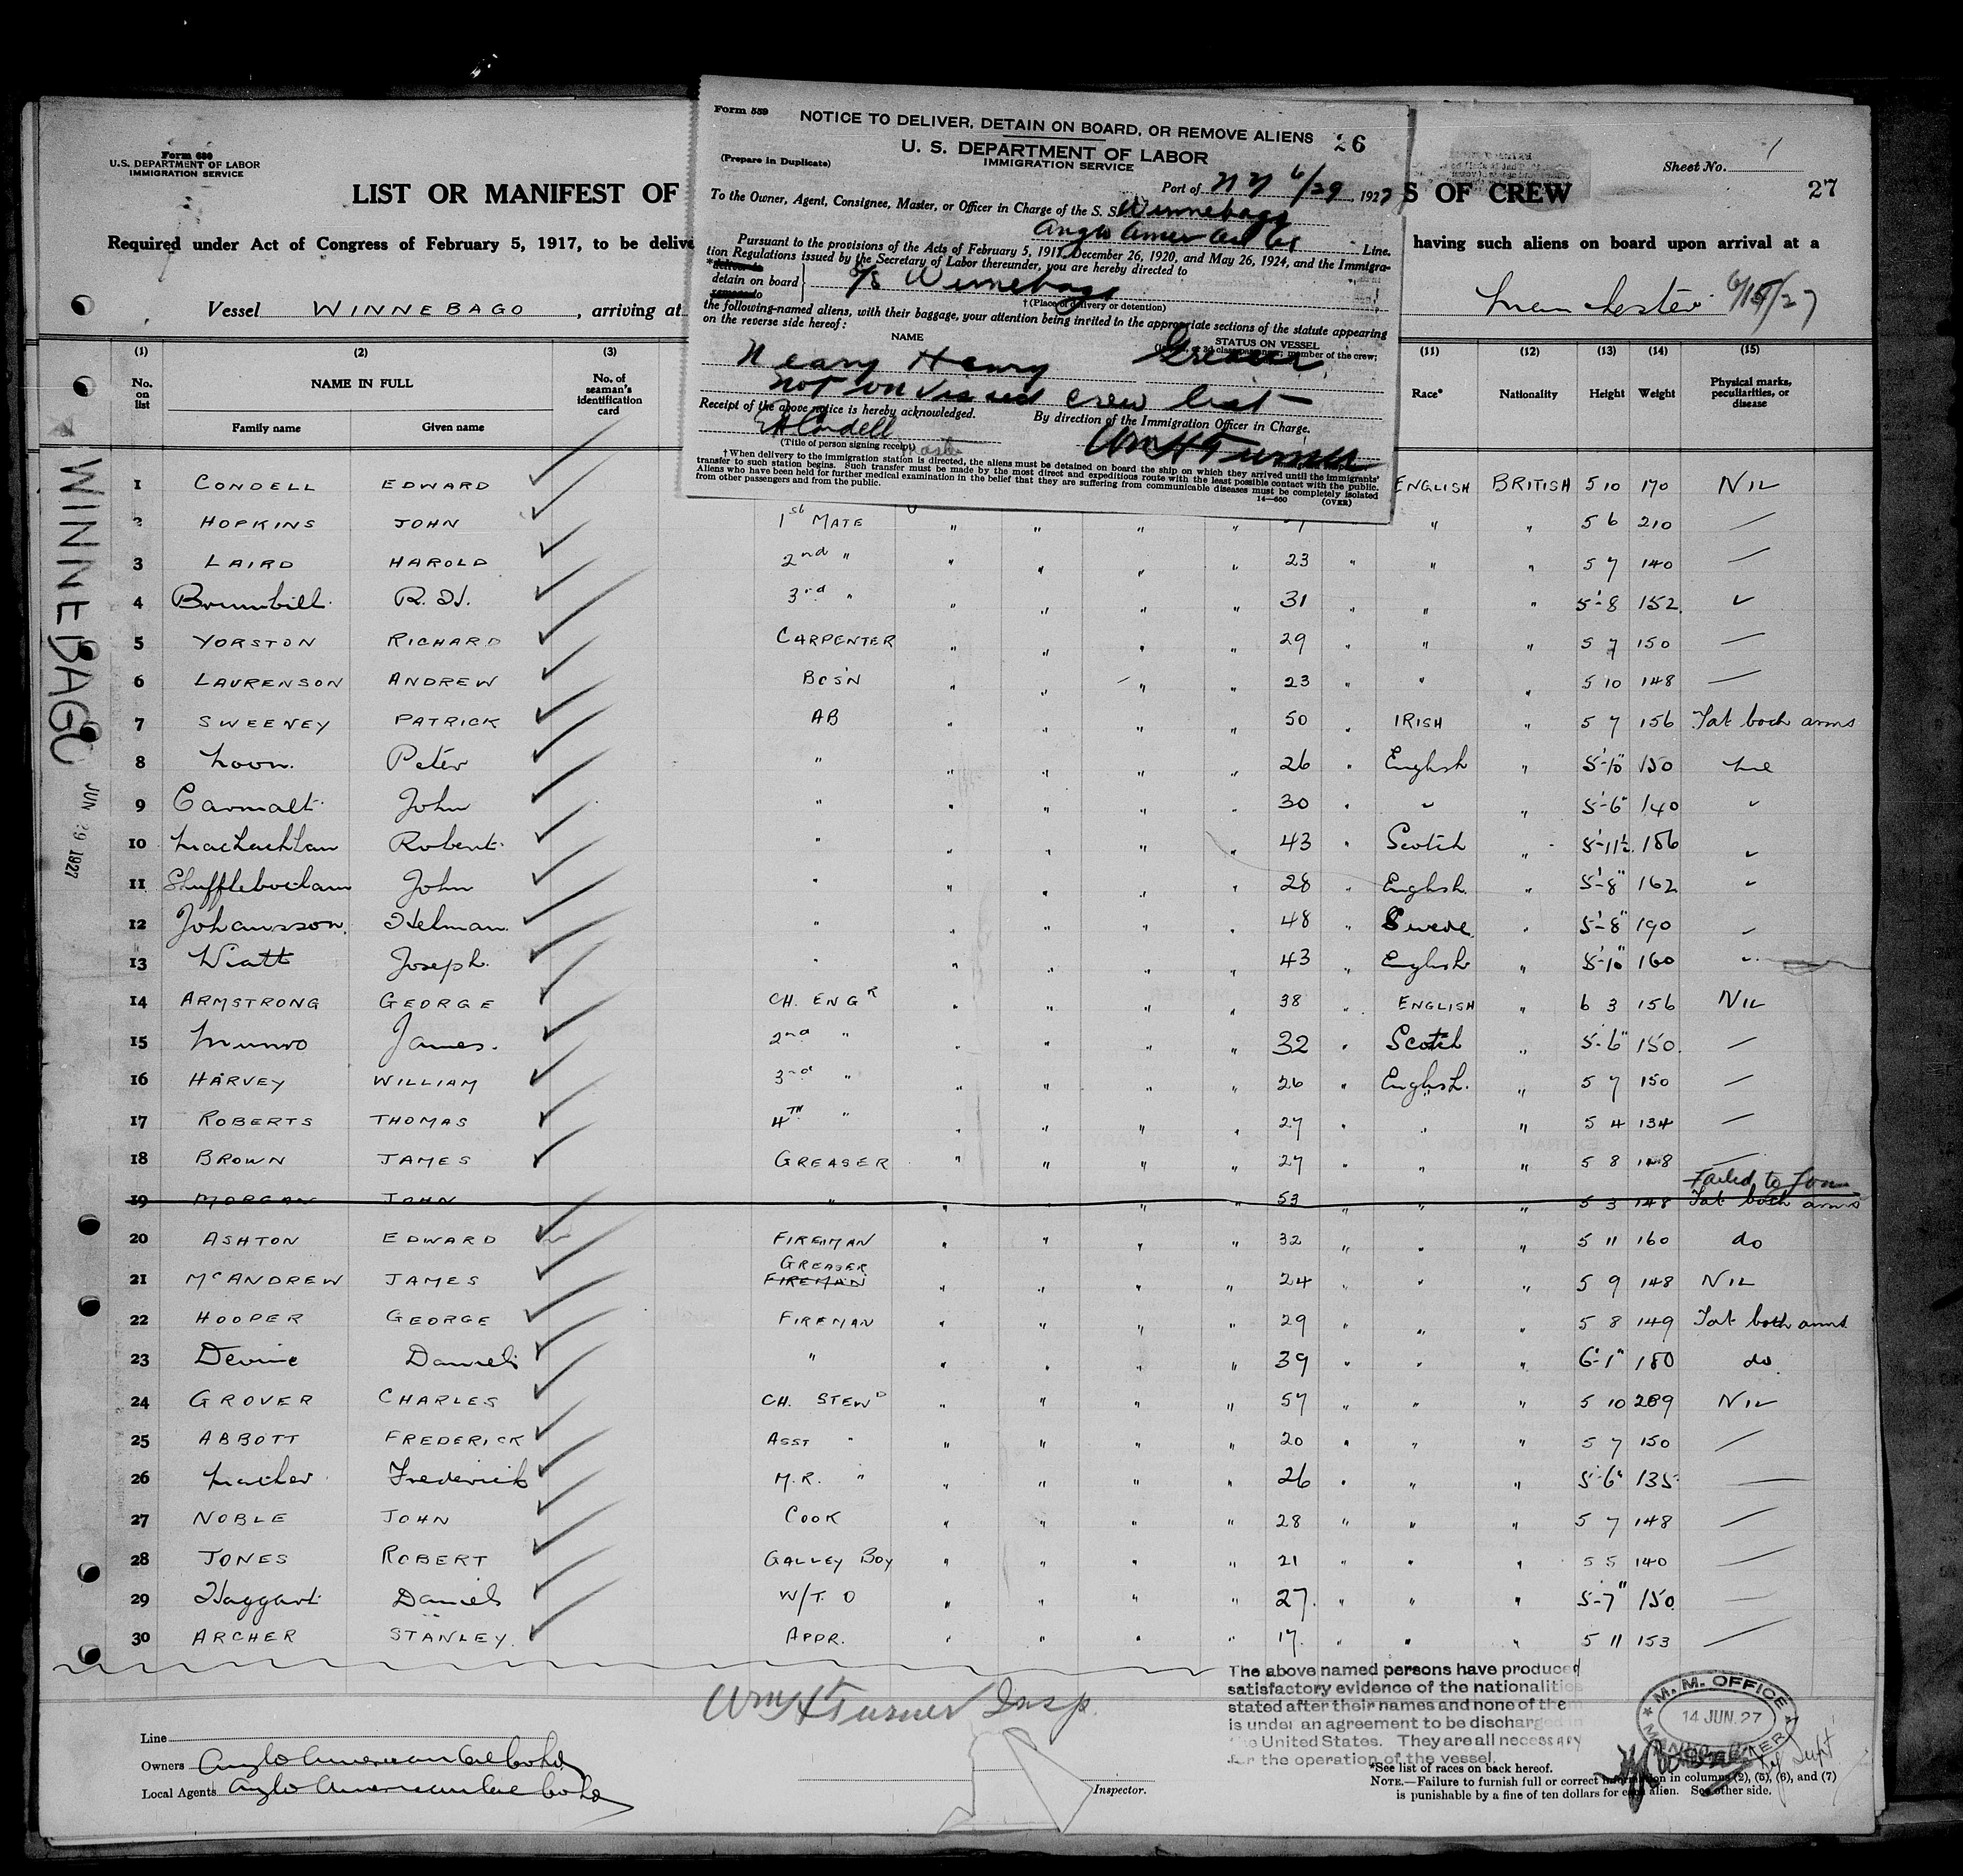 Form 559
NOTICE TO DELIVER, DETAIN ON BOARD, OR REMOVE ALIENS 26
U. S. DEPARTMENT OF LABOR
(Prepare in Duplicate) IMMIGRATION SERVICE
Port of N Y 6/29, 1927
To the Owner, Agent, Consignee, Master, or Officer in Charge of the S. S. Winnebago
Anglo Amer Oil Co Line.
Pursuant to the provisions of the Acts of February 5, 1917, December 26, 1920, and May 26, 1924, and the Immigra-
tion Regulations issued by the Secretary of Labor thereunder, you are hereby directed to
detain on board S/S Winnebago
†(Place of delivery or detention)
the following-named aliens, with their baggage, your attention being invited to the appropriate sections of the statute appearing
on the reverse side hereof:
NAME STATUS ON VESSEL
member of the crew;
Neary Henry Greaser
not on visaed crew list
Receipt of the above notice is hereby acknowledged. By direction of the Immigration Officer in Charge.
E H Condell Wm H Turner
(Title of person signing receipt) Master
†When delivery to the immigration station is directed, the aliens must be detained on board the ship on which they arrived until the immigrants'
transfer to such station begins. Such transfer must be made by the most direct and expeditious route with the least possible contact with the public.
Aliens who have been held for further medical examination in the belief that they are suffering from communicable diseases must be completely isolated
from other passengers and from the public.
14—600 (OVER)
Form 680
U.S. DEPARTMENT OF LABOR
IMMIGRATION SERVICE
Sheet No. 1
27
LIST OR MANIFEST OF S OF CREW
Required under Act of Congress of February 5, 1917, to be delive having such aliens on board upon arrival at a
Vessel WINNEBAGO, arriving at Manchester 6/15/27
(1) (2) (3) (11) (12) (13) (14) (15)
No. on list NAME IN FULL No. of seaman's identification card Race* Nationality Height Weight Physical marks, peculiarities, or disease
Family name Given name
WINNEBAGO
JUN 29 1927
1 CONDELL EDWARD ENGLISH BRITISH 5 10 170 NIL
2 HOPKINS JOHN 1st MATE " " " " " " 5 6 210 —
3 LAIRD HAROLD 2nd " " " " " 23 " " " 5 7 140 —
4 R. H. 3rd " " " " " 31 " " " 5'-8 152 "
5 YORSTON RICHARD CARPENTER " " " " 29 " " " 5 7 150 —
6 LAURENSON ANDREW BOSN " " " " 23 " " " 5 10 148 —
7 SWEENEY PATRICK AB " " " " 50 " IRISH " 5 7 156 Tat both arms
8 Moon Peter " " " " " 26 " English " 5'-10" 150 nil
9 Carmalt John " " " " " 30 " " " 5'-6" 140 "
10 MacLachlan Robert " " " " " 43 " Scotch " 5'-11½ 186 "
11 Shufflebotham John " " " " " 28 " English " 5'-8" 162 "
12 Johansson Helman " " " " " 48 " Swede " 5'-8" 190 "
13 Wiatt Joseph " " " " " 43 " English " 5'-10" 160 "
14 ARMSTRONG GEORGE CH. ENGR " " " " 38 " ENGLISH " 6 3 156 NIL
15 Munro James 2nd " " " " " 32 " Scotch " 5'-6" 150 —
16 HARVEY WILLIAM 3rd " " " " " 26 " English " 5 7 150 —
17 ROBERTS THOMAS 4TH " " " " " 27 " " " 5 4 134 —
18 BROWN JAMES GREASER " " " " 27 " " " 5 8 —
Failed to Join
19 MORGAN JOHN " " " " " 53 " " " 5 3 148 Tat both arms
20 ASHTON EDWARD FIREMAN " " " " 32 " " " 5 11 160 do
GREASER
21 McANDREW JAMES FIREMAN " " " " 24 " " " 5 9 148 NIL
22 HOOPER GEORGE FIREMAN " " " " 29 " " " 5 8 149 Tat both arms
23 Devine Daniel " " " " " 39 " " " 6'-1" 180 do
24 GROVER CHARLES CH. STEWD " " " " 57 " " " 5 10 289 NIL
25 ABBOTT FREDERICK ASST " " " " " 20 " " " 5 7 150 —
26 Mather Frederick M.R. " " " " " 26 " " " 5'-6" 135 —
27 NOBLE JOHN COOK " " " " 28 " " " 5 7 148 —
28 JONES ROBERT GALLEY BOY " " " " 21 " " " 5 5 140 —
29 Haggart Daniel W/T. O " " " " 27 " " " 5-7" 150 —
30 ARCHER STANLEY APPR. " " " " 17 " " " 5 11 153 —
Wm H Turner Insp.
The above named persons have produced
satisfactory evidence of the nationalities
stated after their names and none of them
is under an agreement to be discharged in
the United States. They are all necessary
for the operation of the vessel.
M. M. OFFICE
14 JUN. 27
MANCHESTER
Supt
Line
Owners Anglo American Oil Co Ld
Local Agents Anglo American Oil Co Ld
Inspector.
*See list of races on back hereof.
NOTE.—Failure to furnish full or correct information in columns (2), (5), (6), and (7)
is punishable by a fine of ten dollars for each alien. See other side.